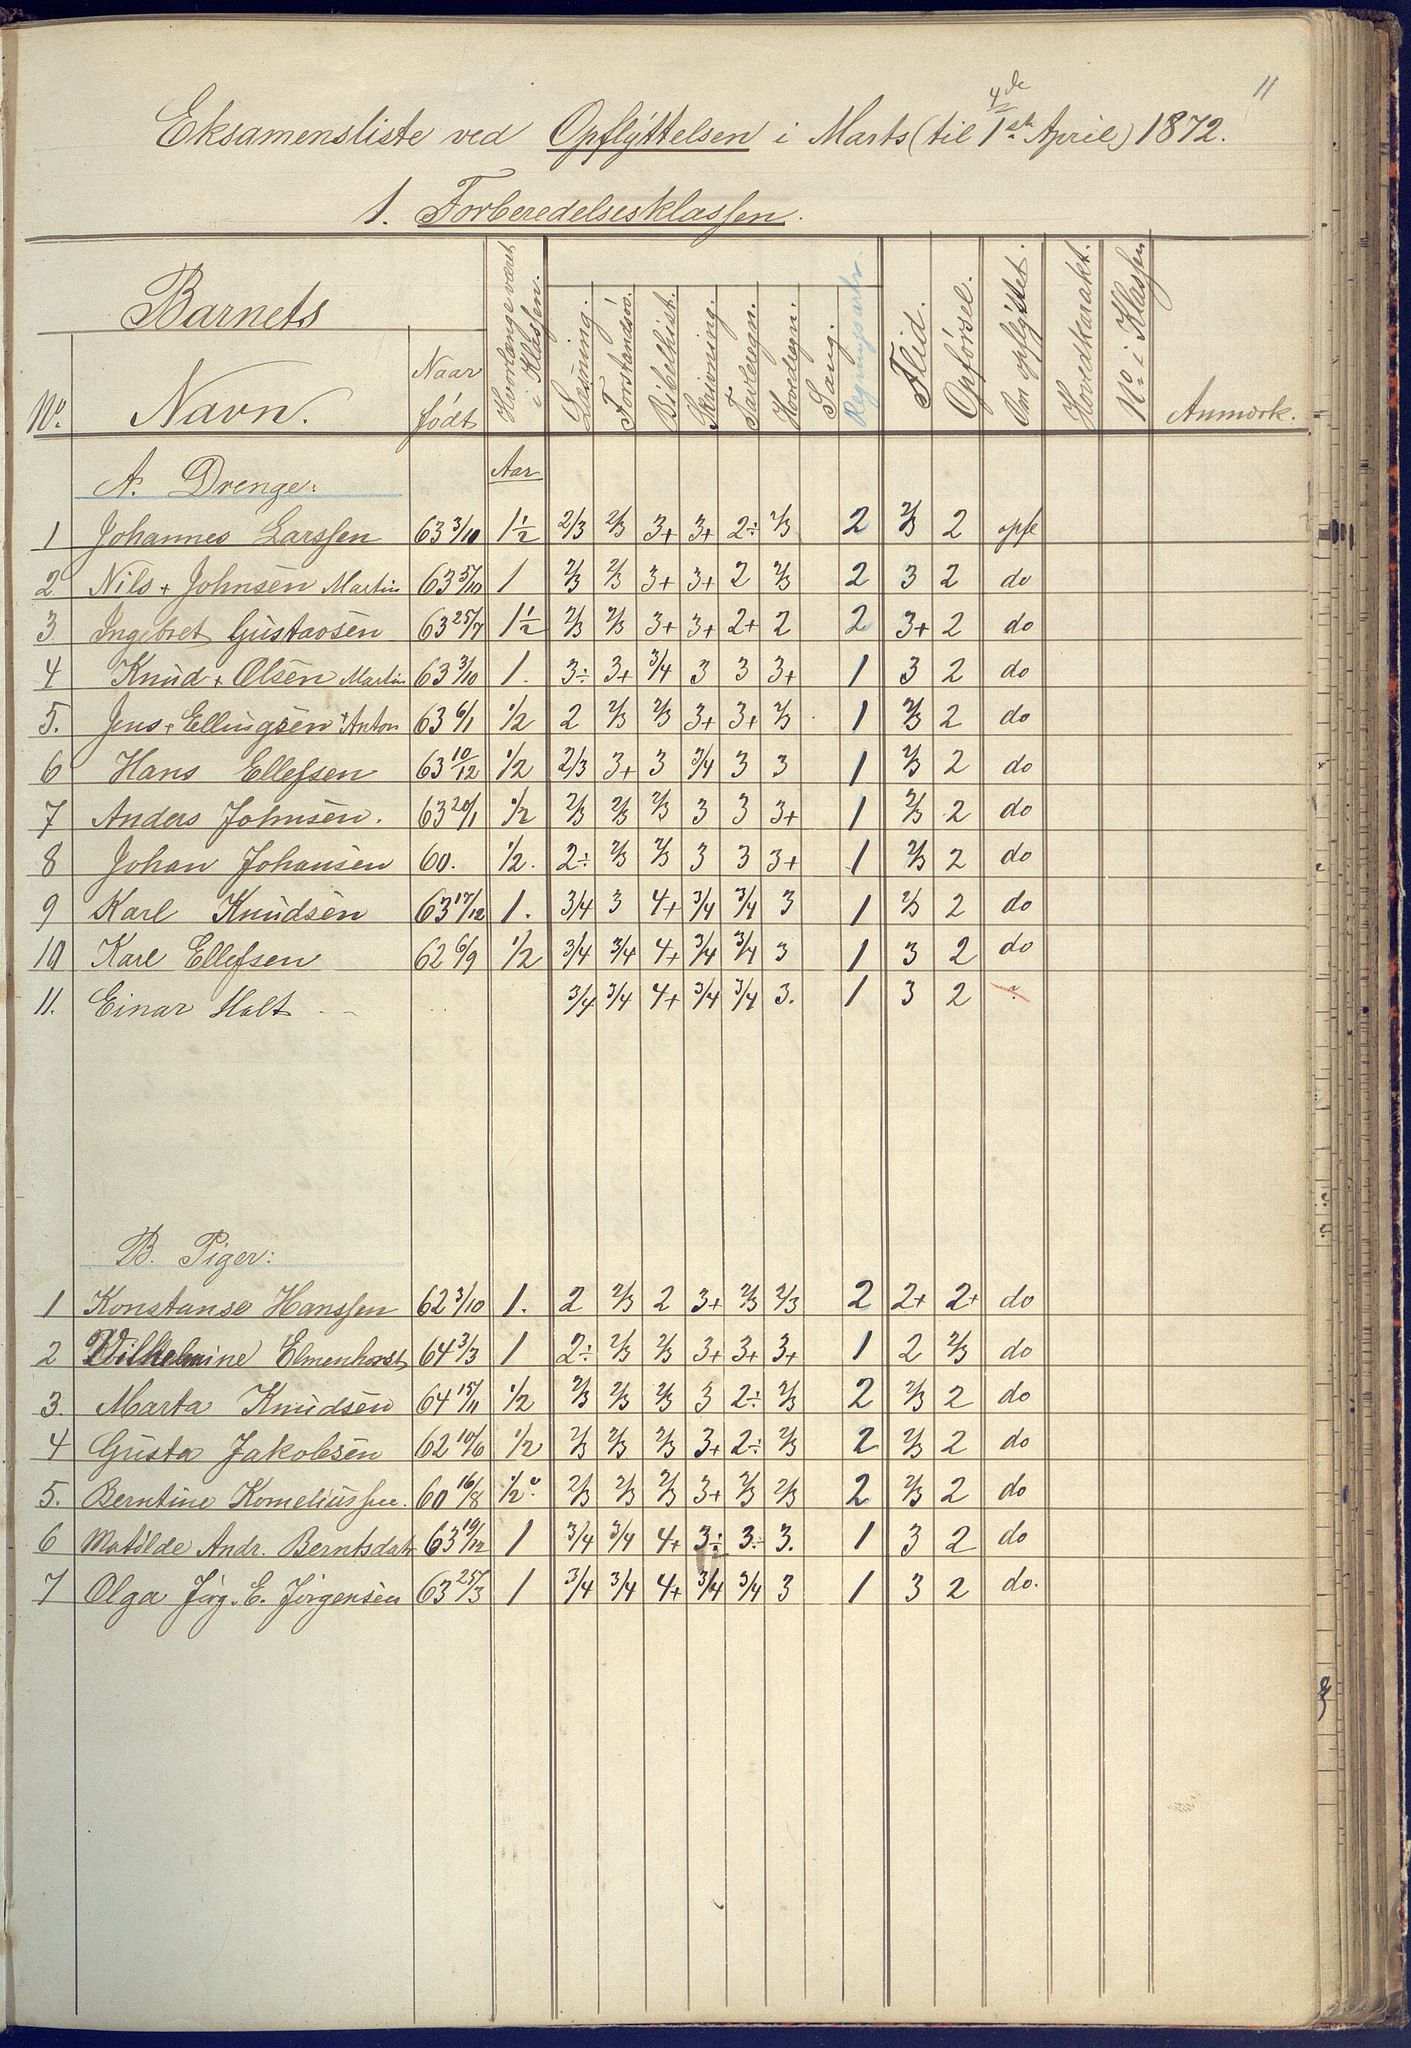 11
4de
Eksamensliste ved Opflyttelsen i Marts (til 1ste April) 1872.
1. Forberedelsesklassen.
Barnets
No. Navn. Naar født Hvorlænge været i Klassen. Læsning. Forstandsøv. Bibelhist. Skrivning. Tavleregn. Hovedregn. Sang. Regningsartr. Flid. Opførsel. Om opflyttet. Hovedkarakt. No. i Klassen Anmærk.
A. Drenge: Aar
1 Johannes Larssen 63 3/10 1 1/2 2/3 2/3 3+ 3+ 2÷ 2/3 2 2/3 2 opfl
2 Nils + Johnsen Martin 63 5/10 1 2/3 2/3 3+ 3+ 2 2/3 2 3 2 do
3 Ingebret Gustavsen 63 25/7 1 1/2 2/3 2/3 3+ 3+ 2+ 2 2 3+ 2 do
4 Knud + Olsen Martin 63 3/10 1. 3÷ 3+ 3/4 3 3 3+ 1 3 2 do
5. Jens + Ellingsen + Anton 63 6/1 1/2 2 2/3 2/3 3+ 3+ 2/3 1 2/3 2 do
6 Hans Ellefsen 63 10/12 1/2 2/3 3+ 3 3/4 3 3 1 2/3 2 do
7 Anders Johnsen. 63 20/1 1/2 2/3 2/3 2/3 3 3 3+ 1 2/3 2 do
8 Johan Johansen 60. 1/2. 2÷ 2/3 2/3 3 3 3+ 1 2/3 2 do
9 Karl Knudsen 63 17/12 1. 3/4 3 4+ 3/4 3/4 3 1 2/3 2 do
10 Karl Ellefsen 62 6/9 1/2 3/4 3/4 4+ 3/4 3/4 3 1 3 2 do
11. Einar Holt 3/4 3/4 4+ 3/4 3/4 3. 1 3 2
B. Piger:
1 Konstanse Hanssen 62 3/10 1. 2 2/3 2 3+ 2/3 2/3 2 2+ 2+ do
2 Wilhelmine Elmenhorst 64 3/3 1 2÷ 2/3 2/3 3+ 3+ 3+ 1 2 2/3 do
3. Marta Knudsen 64 15/11 1/2 2/3 2/3 2/3 3 2÷ 2/3 2 2/3 2 do
4 Gusta Jakobsen 62 10/6 1/2 2/3 2/3 2/3 3+ 2÷ 2/3 2 2/3 2 do
5. Berntine Korneliussen. 60 16/8 1/2 2/3 2/3 2/3 3+ 2/3 2/3 2 2/3 2 do
6 Matilde Andr. Berntsdatr 63 19/12 1 3/4 3/4 4+ 3÷ 3÷ 3. 1 3 2 do
7 Olga Jørg. E. Jørgensen 63 25/3 1 3/4 3/4 4+ 3/4 3/4 3 1 3 2 do.